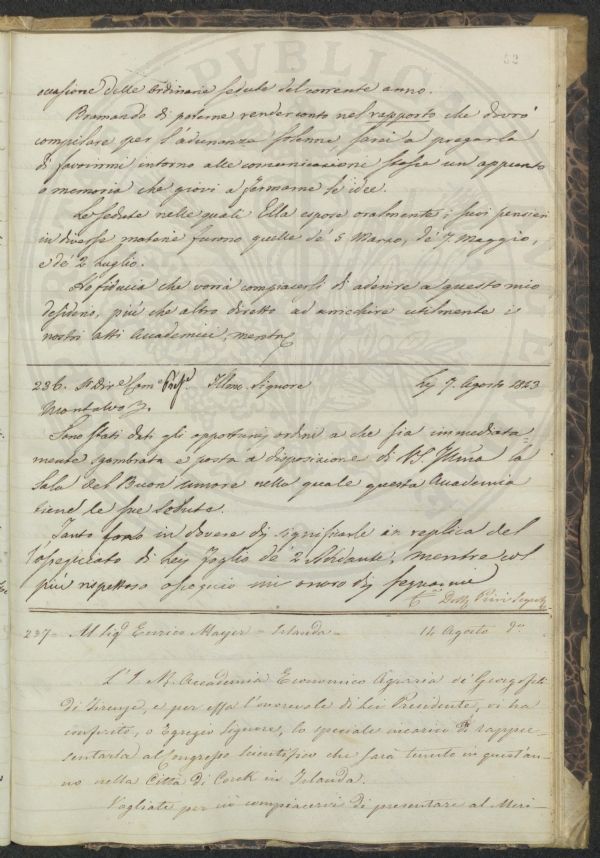 52
occasione delle ordinarie sedute del corrente anno.
Bramando di poterne render conto nel rapporto che dovrò
compilare per l'adunanza solenne sarei a pregarla
di favorirmi intorno alle comunicazioni stesse un appunto
o memoria che giovi a fermarne le idee.
Le sedute nelle quali Ella espose oralmente i suoi pensieri
in diverse materie furono quelle de' 5 Marzo, de' 7. Maggio,
e de' 2 Luglio.
Ho fiducia che vorrà compiacersi di aderire a questo mio
desiderio, più che altro diretto ad arricchire utilmente i
nostri atti Accademici, mentre
236. Illmo. Signore Li 7. Agosto 1843
Montalvo
Sono stati dati gli opportuni ordini a che sia immediata-
mente sgombrata e posta a disposizione di V.S. Illma la
Sala del Buon Umore nella quale questa Accademia
tiene le sue Sedute.
Tanto sono in dovere di significarle in replica del
pregiato di Lei Foglio de' 2 Andante, mentre col
più rispettoso ossequio mi onoro di segnarmi
237. Al Sig. Enrico Mayer - Irlanda - 14 Agosto do
L'I. R. Accademia Economico Agraria de' Georgofili
di Firenze, e per essa l'onorevole di Lei Presidente, vi ha
conferito, o Egregio Signore, lo speciale incarico di rappre-
sentarla al Congresso Scientifico che sarà tenuto in quest'an-
no nella Città di Corck in Irlanda.
Vogliate per ciò compiacervi di presentare al Meri-